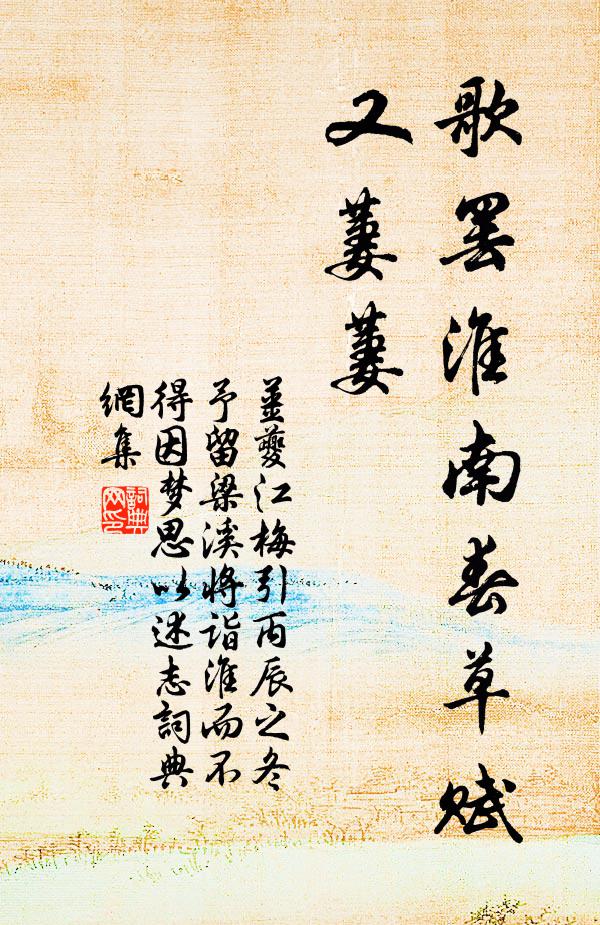 歌罢淮南春草赋
又萋萋
姜夔江梅引丙辰之冬
予留梁溪将诣淮而不
得因梦思以述志詞典
網集
詞典
网印